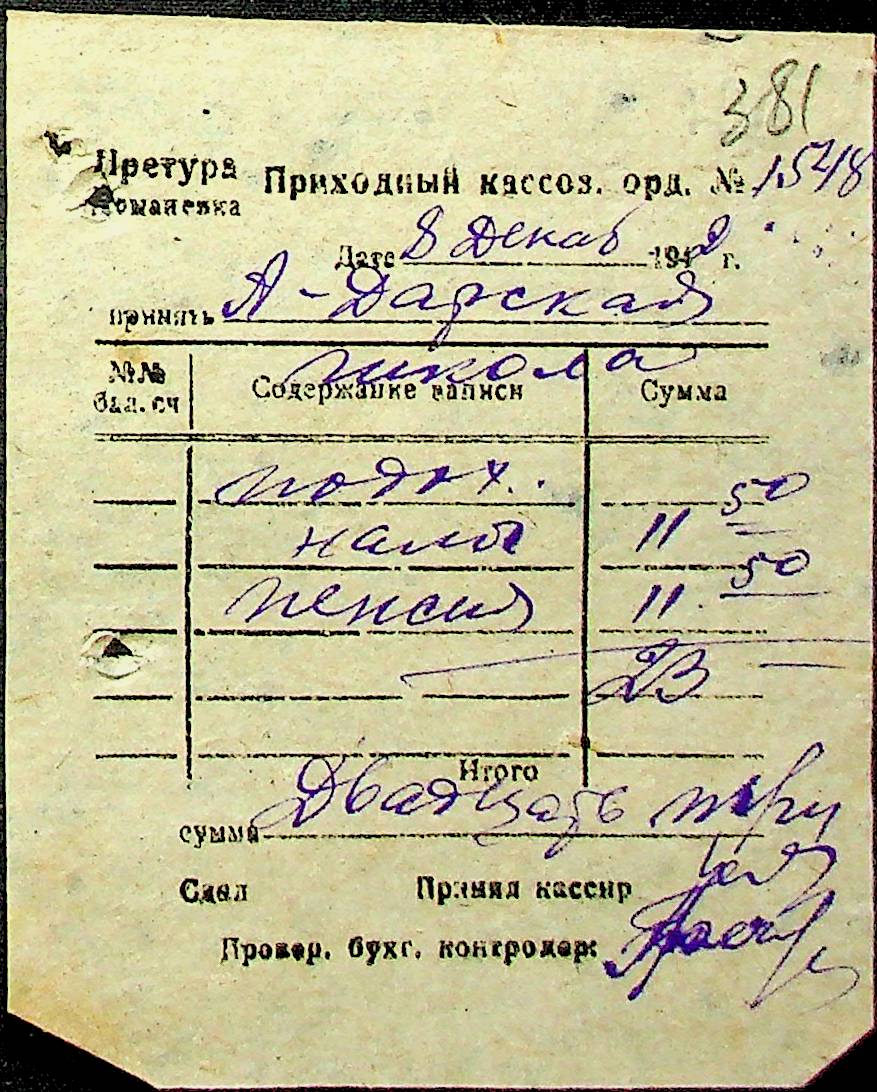 381
Претура Приходный кассов. орд. № 1548
Романевка
Дата 8 Декаб 1942 г.
принять А-Дарская
школа
№№ бал. сч Содержание записи Сумма
подох.
налог 11 50
пенсия 11 50
23
Итого
сумма Двадцать три
Сдал Принял кассир
Провер. бухг. контролер: